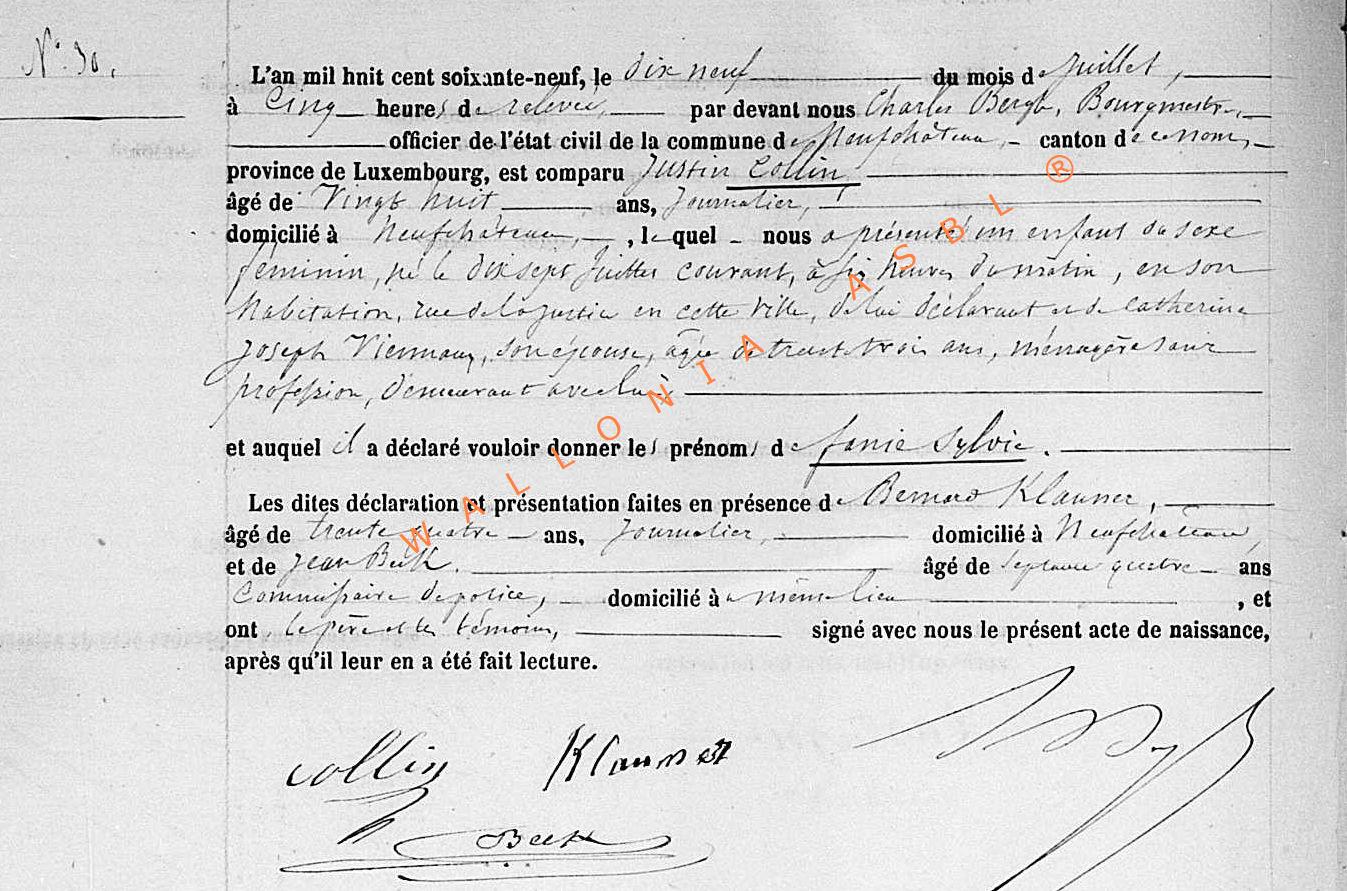 N° 30.
L'an mil huit cent soixante-neuf, le dix neuf du mois de Juillet,
à Cinq heures de relevée, par devant nous Charles Bergh, Bourgmestre,
officier de l'état civil de la commune de Neufchâteau, canton de ce nom,
province de Luxembourg, est comparu Justin Collin
âgé de Vingt huit ans, Journalier,
domicilié à Neufchâteau, , lequel nous a présenté un enfant du sexe
féminin, né le dix sept Juillet courant, à six heures du matin, en son
habitation, rue de la Justice en cette ville, de lui déclarant et de Catherine
Joseph, son épouse, âgée de trente trois ans, ménagère sans
profession, demeurant avec lui
et auquel il a déclaré vouloir donner les prénoms de fanie Sylvie.
Les dites déclaration et présentation faites en présence de Bernard Klausner,
âgé de trente quatre ans, Journalier, domicilié à Neufchâteau,
et de Jean Beck. âgé de septante quatre ans
Commissaire de police, domicilié à même lieu , et
ont le père et les témoins, signé avec nous le présent acte de naissance,
après qu'il leur en a été fait lecture.
collin Klausner
Beck
WALLONIA ASBL ®